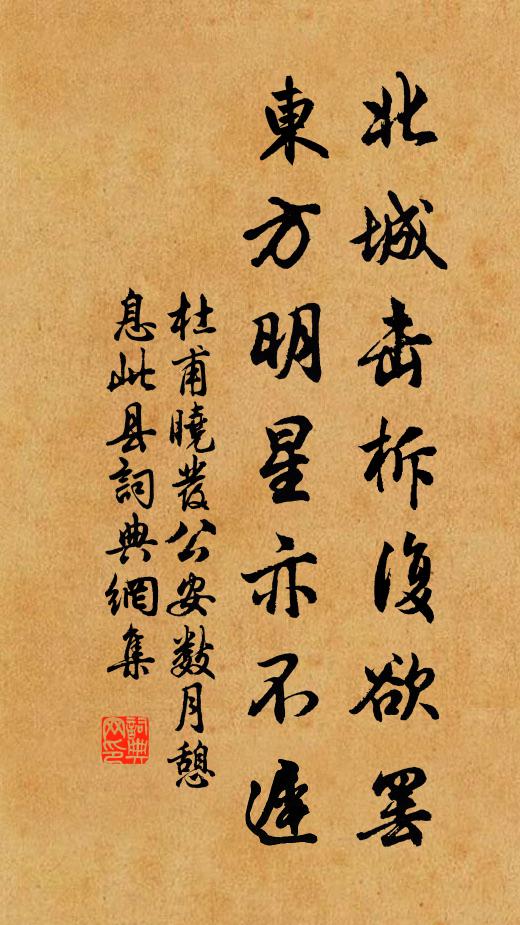 北城击柝復欲罢
東方明星亦不遲
杜甫曉發公安数月憩
息此县詞典網集
詞典网印